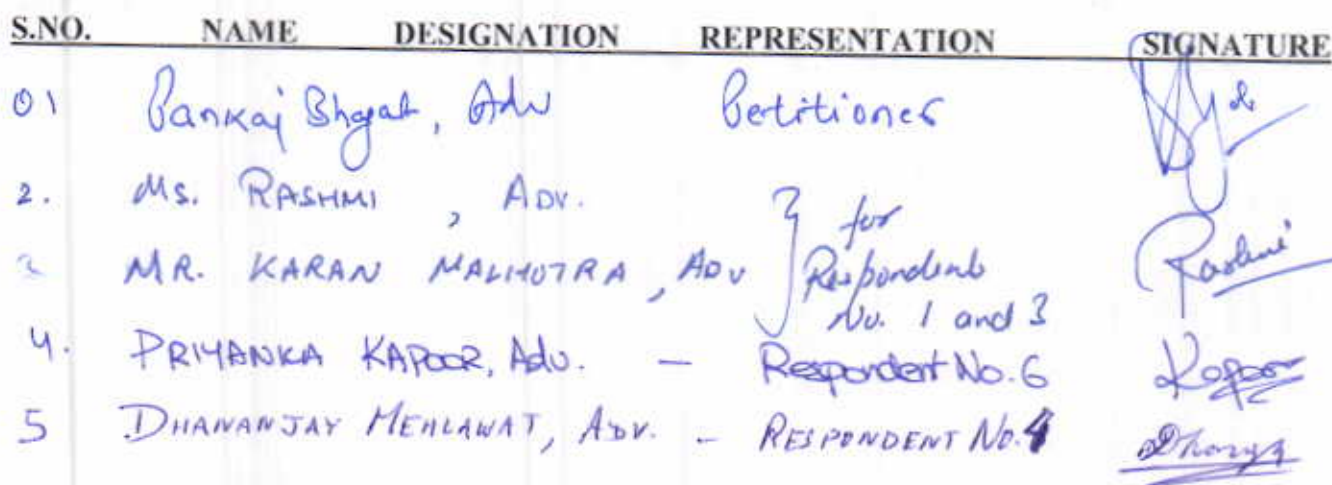 S.NO. NAME DESIGNATION REPRESENTATION SIGNATURE
01 Pankaj Bhagat, Adv Petitioner
2. Ms. RASHMI , ADV. } for Respondents No. 1 and 3 Rashmi
3 MR. KARAN MALHOTRA, ADV
4. PRIYANKA KAPOOR, Adv. — Respondent No. 6 Kapoor
5 DHANANJAY MEHLAWAT, ADV. - RESPONDENT NO. 4